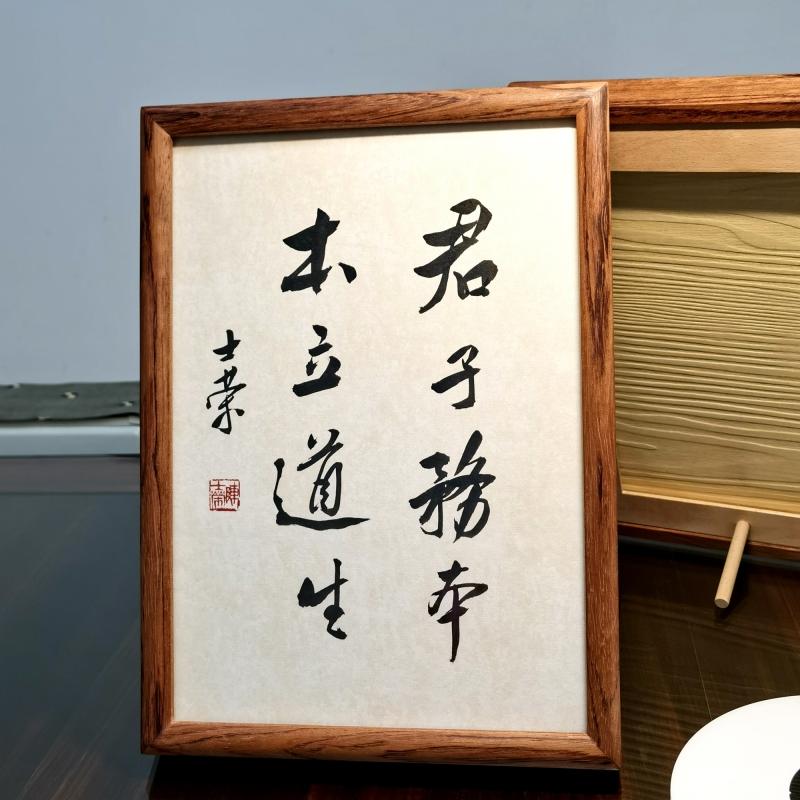 君子務本
本立道生
士榮